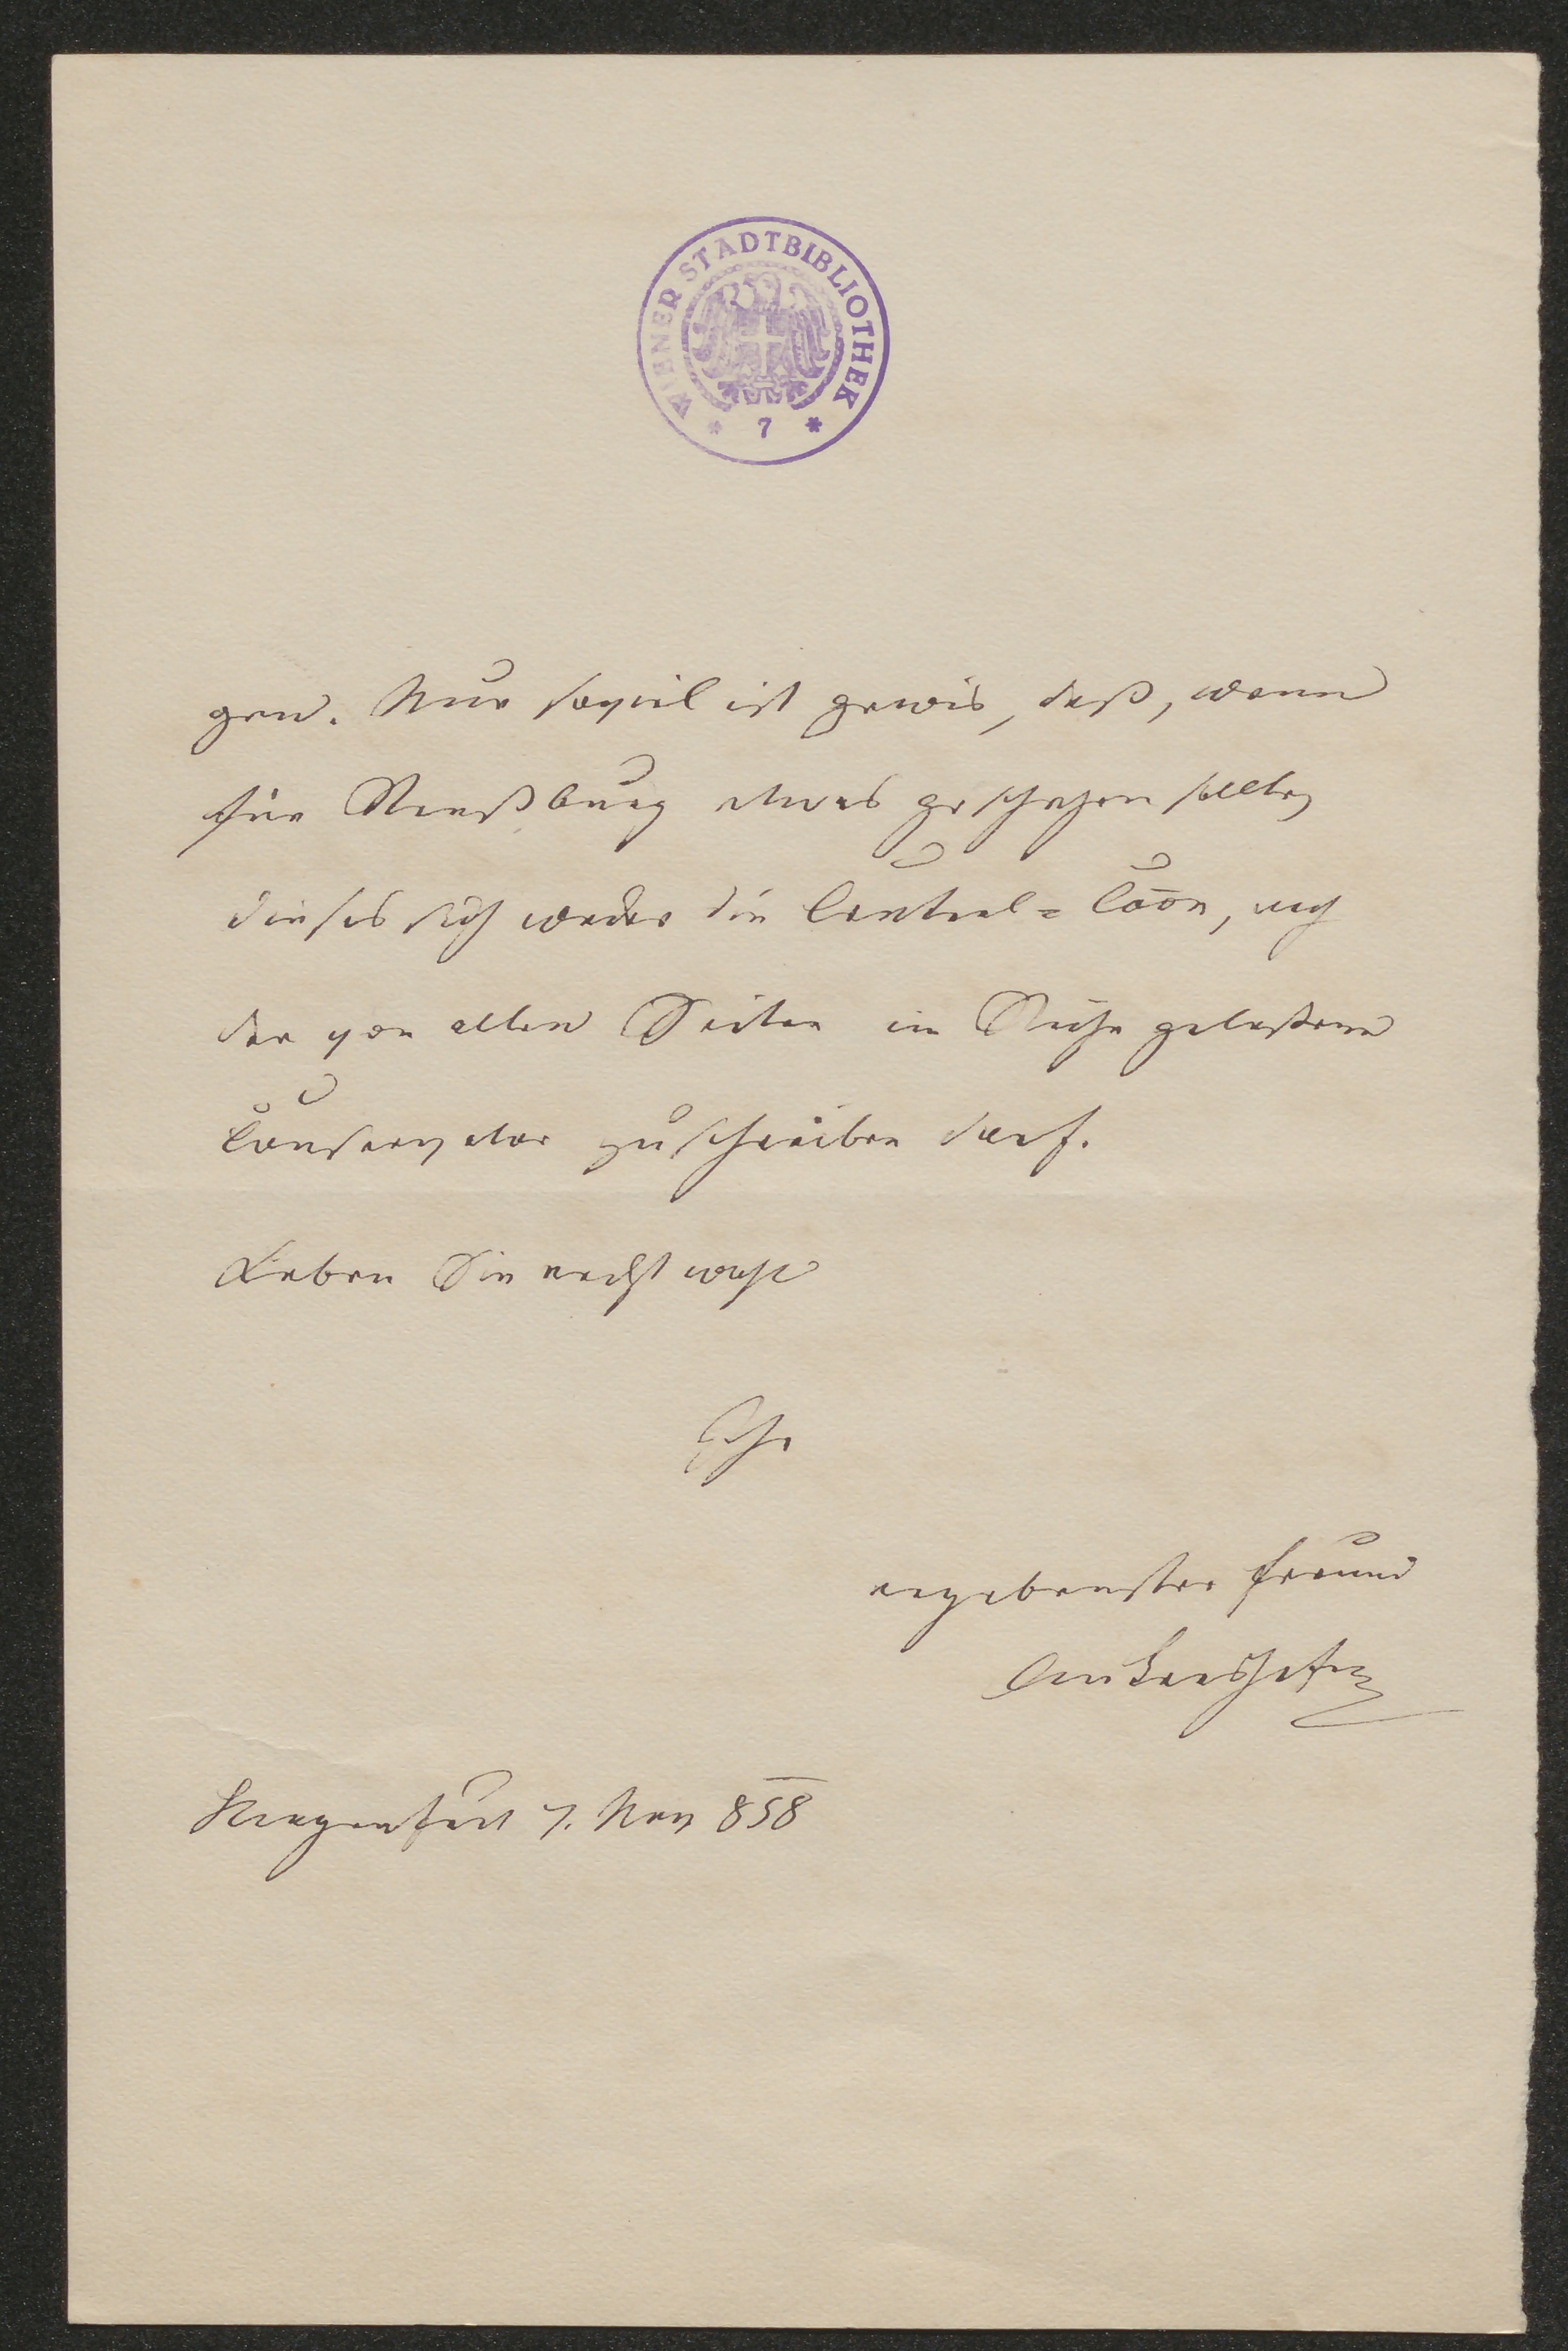 WIENER STADTBIBLIOTHEK
* 7 *
gen. Nur soviel ist gewis, daß, wenn
für Straßburg etwas geschehen sollte,
dieses sich weder die Central=Coon, noch
der von allen Seiten in Ruhe gelassene
Conservator zuschreiben darf.
Leben Sie recht wohl
Ihr
ergebenster Freund
Ankershofen
Klagenfurt 7. Nov 858